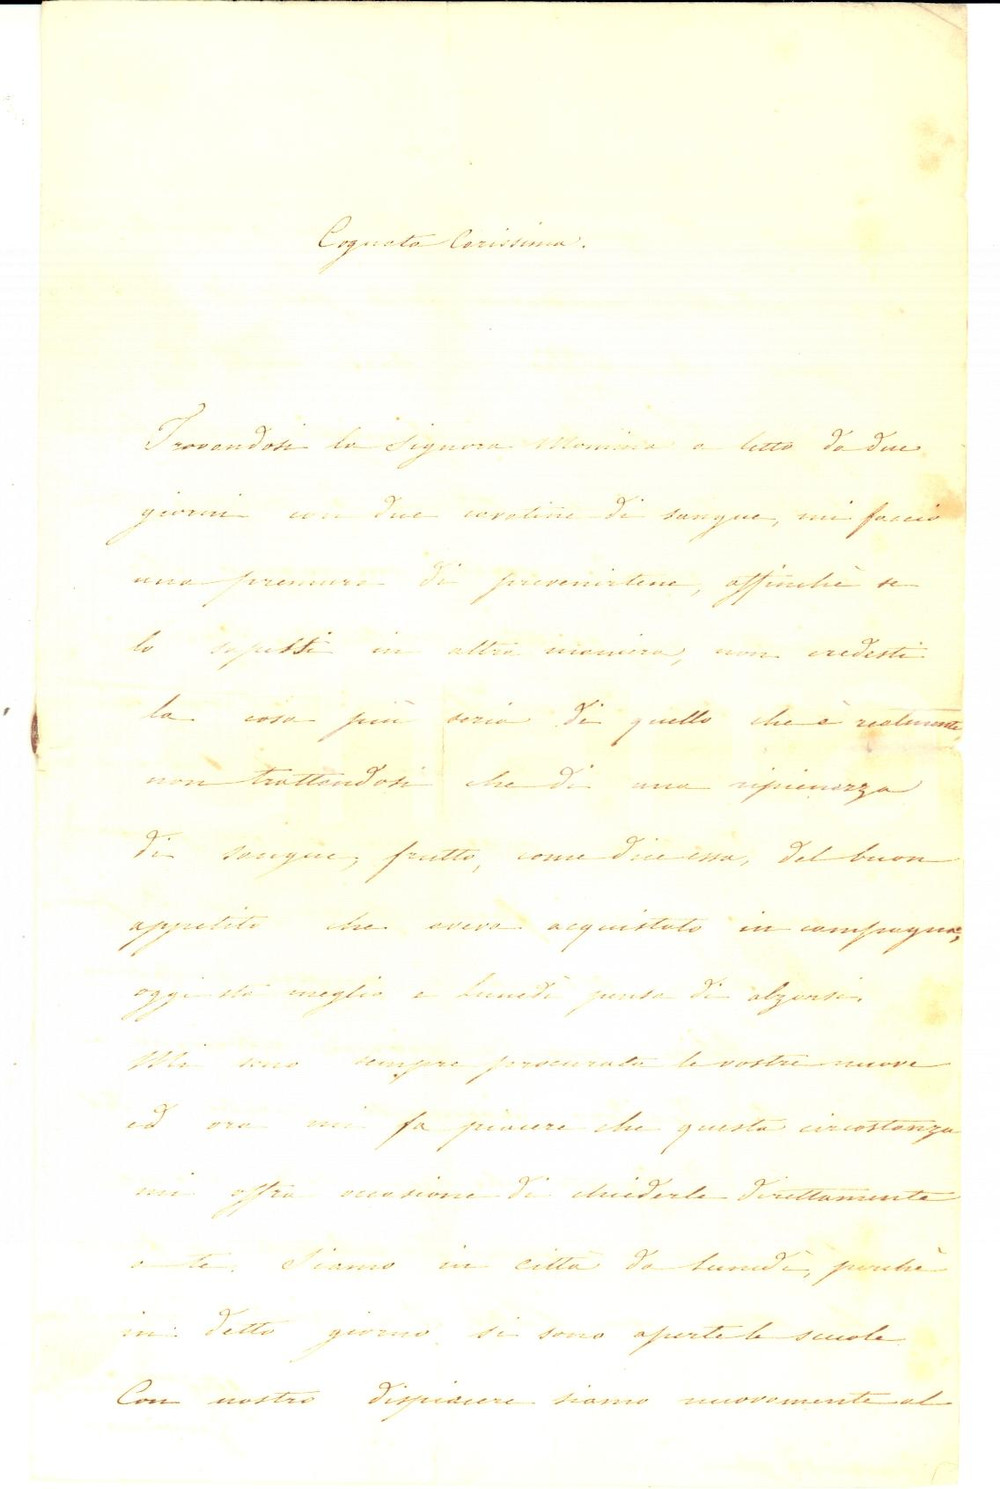 Cognata Carissima.
Trovandosi la Signora Momina a letto da due
giorni con due cavatine di sangue, mi faccio
una premura di prevenirtene, affinchè se
lo sapessi in altra maniera, non credesti
la cosa più seria di quello che è realmente
non trattandosi che di una ripienezza
di sangue, frutto, come dice essa, del buon
appetito che aveva acquistato in campagna,
oggi stà meglio e Lunedì pensa di alzarsi.
Mi sono sempre procurata le vostre nuove
ed ora mi fa piacere che questa circostanza
mi offra occasione di chiederle direttamente
a te. Siamo in città da lunedì, perchè
in detto giorno si sono aperte le scuole.
Con nostro dispiacere siamo nuovamente al